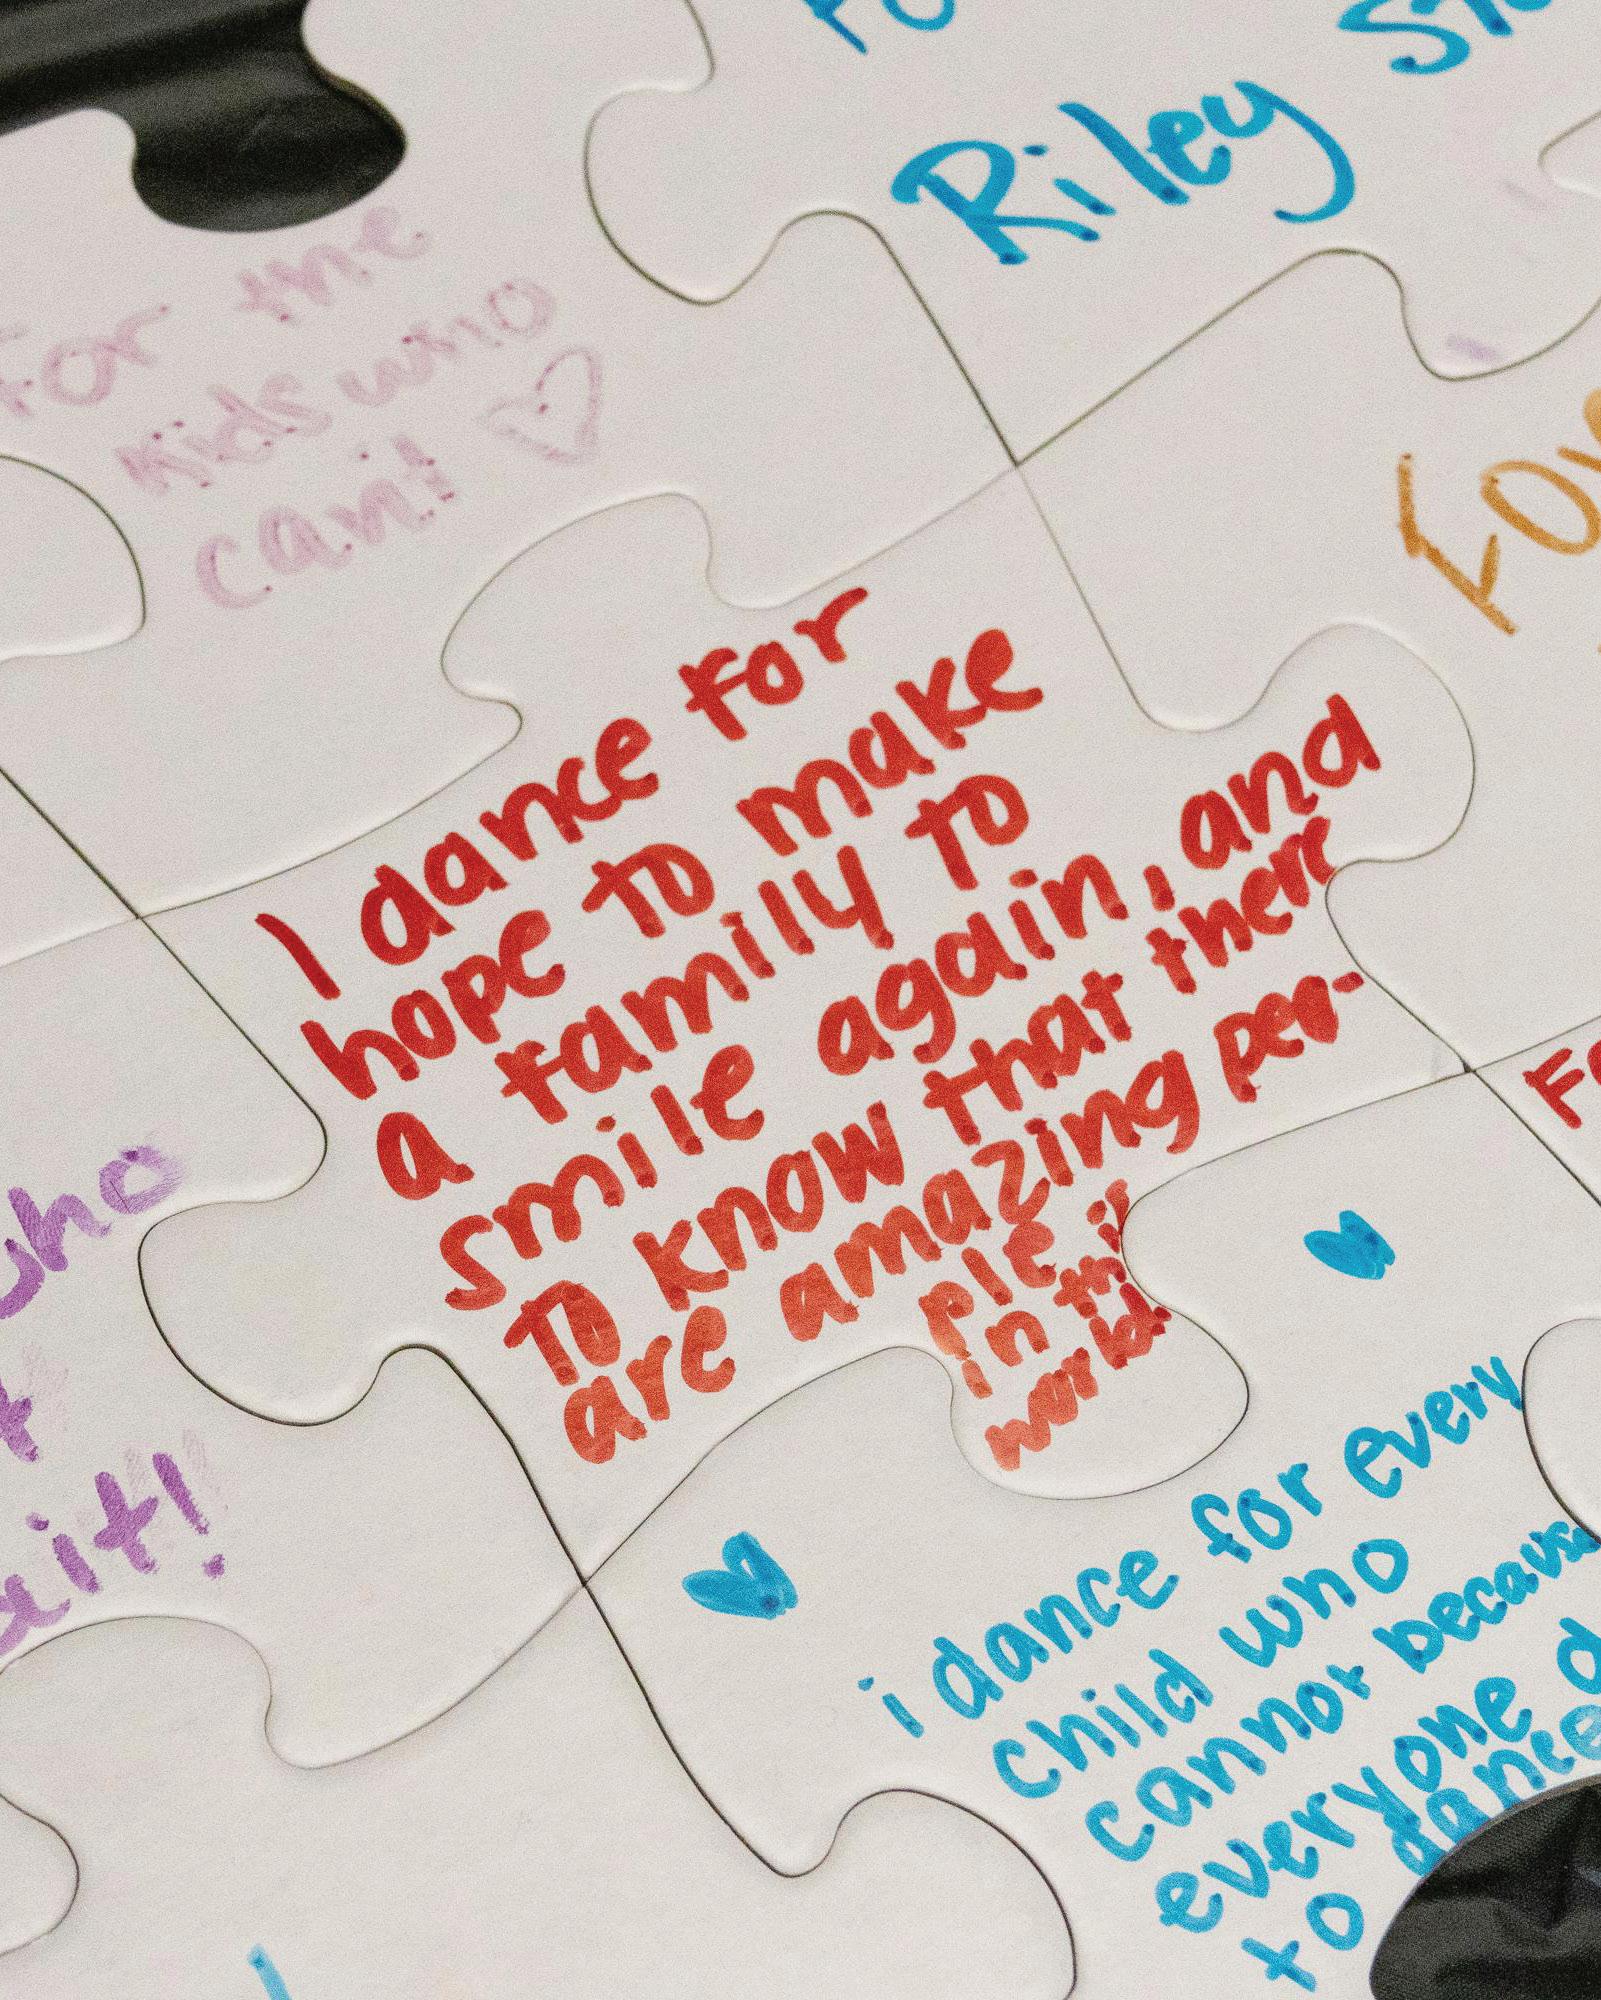 Riley
for the
kids who
can't
I dance for
hope to make
a family to
smile again, and
to know that there
are amazing per-
ple in this
world.
who
it!
i dance for every
child who
cannot because
everyone
to dance